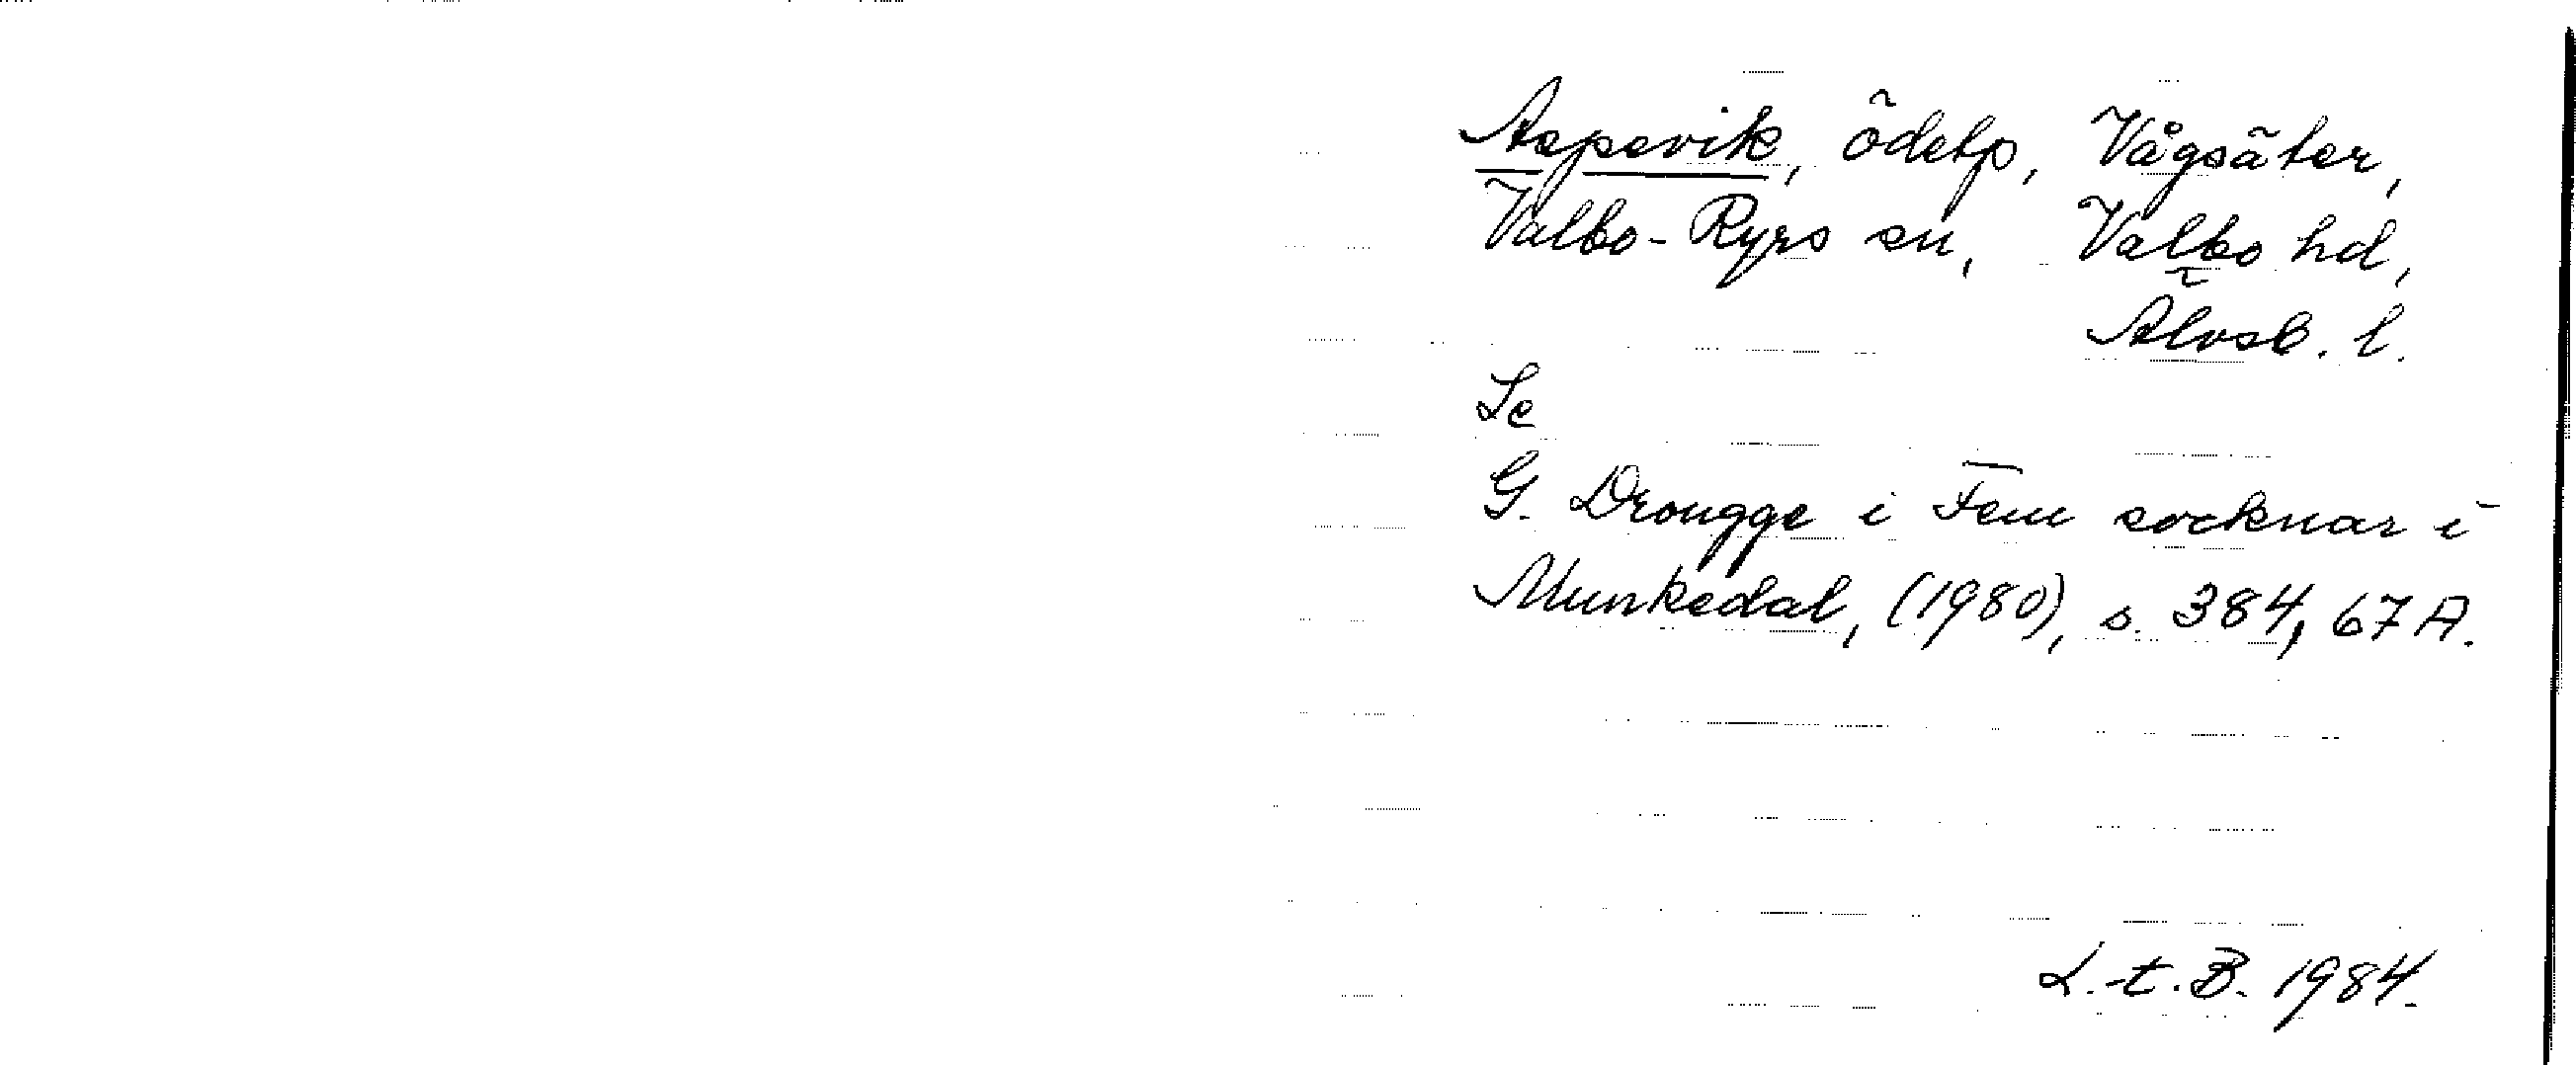 Aspevik, ödetp, Vågsäter,
Valbo-Ryrs sn, Valbo hd,
Älvsb. l.
Se
G. Drougge i Fem socknar i
Munkedal, (1980), s. 384, 67 A.
L.-t. B. 1984.